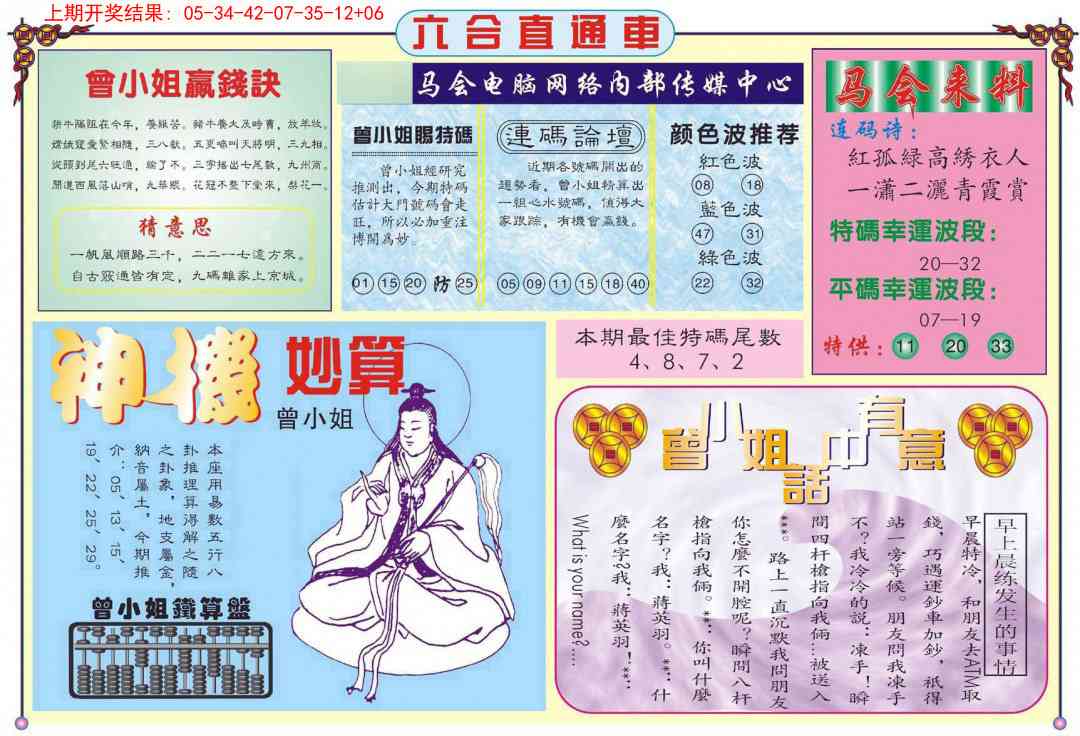 上期开奖结果：05-34-42-07-35-12+06
六合直通車
曾小姐贏錢訣
猜意思
一帆風順路三千，二二一七遠方來。
自古窮通皆有定，九碼離家上京城。
马会电脑网络内部传媒中心
曾小姐賜特碼
曾小姐經研究
推測出，今期特碼
估計大門號碼會走
旺，所以必加重注
博開為妙。
01 15 20 防 25
連碼論壇
近期各號碼開出的
趨勢看，曾小姐精算出
一組心水號碼，值得大
家跟踪，有機會贏錢。
05 09 11 15 18 40
颜色波推荐
紅色波
08 18
藍色波
47 31
綠色波
22 32
马会来料
连码诗：
紅孤緑高綉衣人
一瀟二灑青霞賞
特碼幸運波段：
20—32
平碼幸運波段：
07—19
特供：11 20 33
神機妙算
曾小姐
本座用易數五行八
卦推理算得解之隨
之卦象，地支屬金，
納音屬土，今期推
介：05、13、15、
19、22、25、29。
曾小姐鐵算盤
本期最佳特碼尾數
4、8、7、2
曾小姐話中有意
早上晨练发生的事情
早晨特冷，和朋友去ATM取
錢，巧遇運鈔車加鈔，祇得
站一旁等候。朋友問我凍手
不？我冷冷的説：凍手！瞬
間四杆槍指向我倆…被送入
***。路上一直沉默我問朋友
你怎麼不開腔呢？瞬間八杆
槍指向我倆。**：你叫什麼
名字？我：蔣英羽。**：什
麼名字？我：蔣英羽！**：
What is your name?....